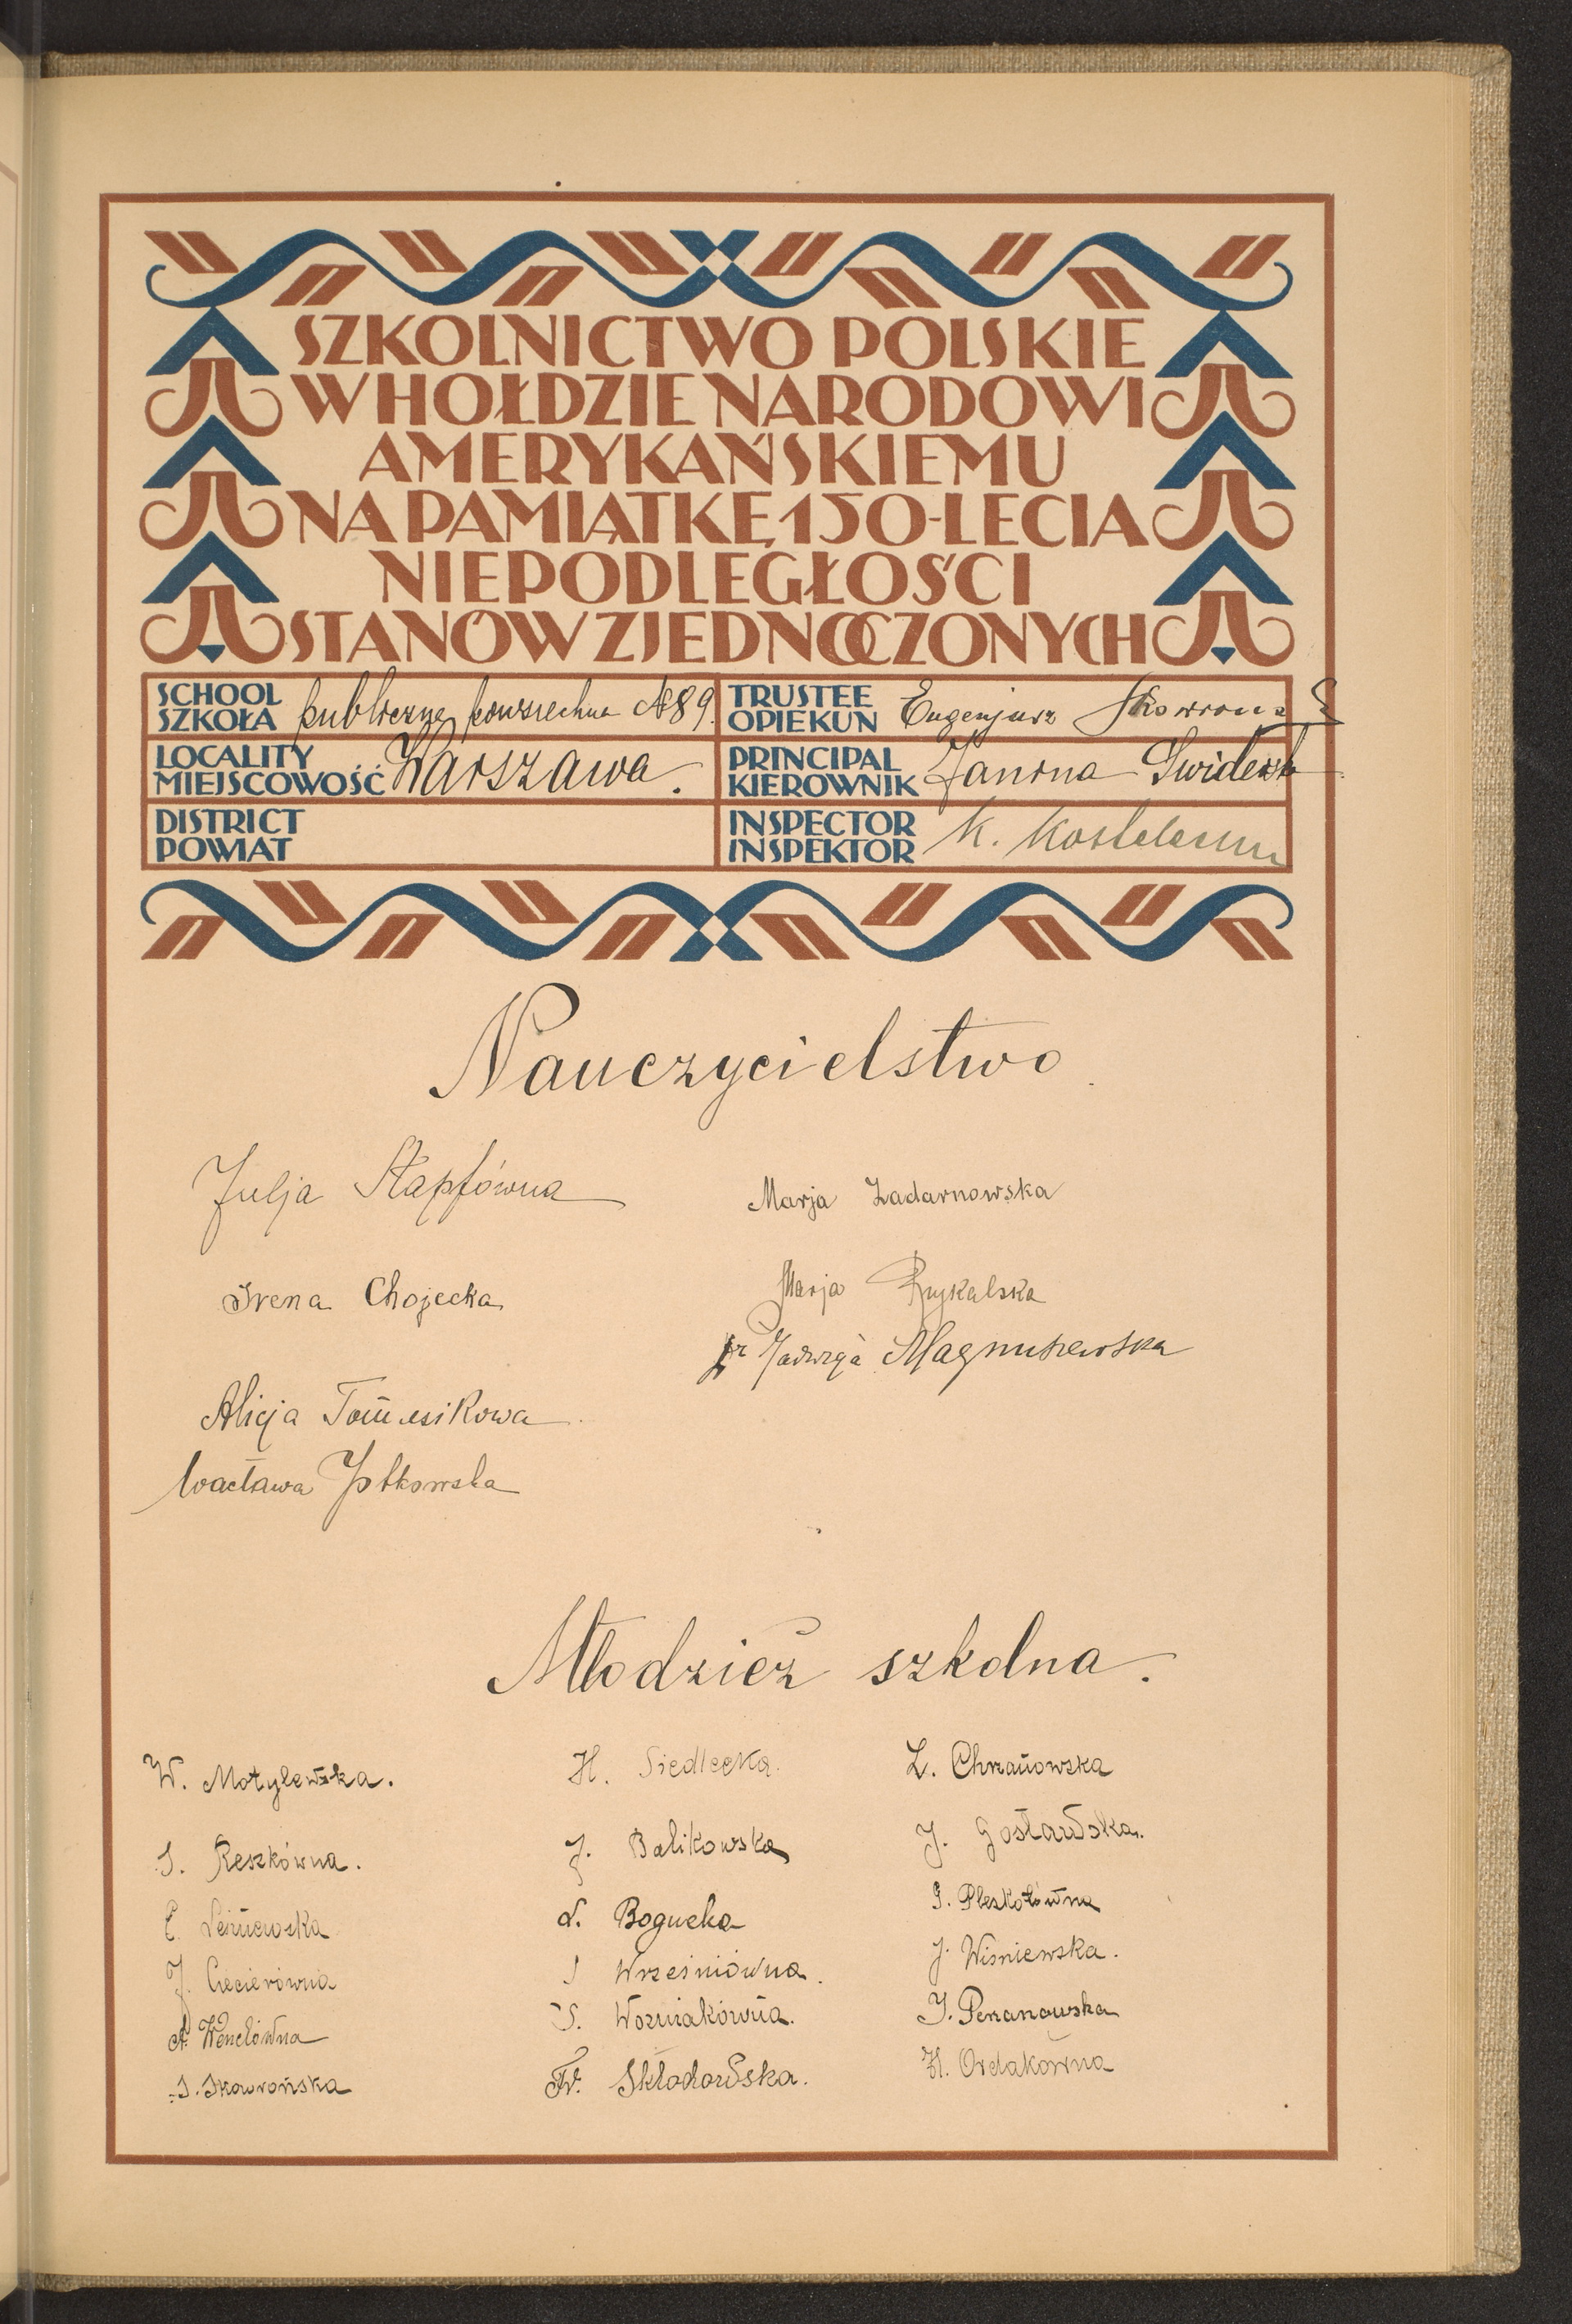 SZKOLNICTWO POLSKIE
W HOŁDZIE NARODOWI
AMERYKAŃSKIEMU
NA PAMIĄTKĘ 150-LECIA
NIEPODLEGŁOŚCI
STANÓW ZJEDNOCZONYCH
SCHOOL
SZKOŁA publiczna powszechna № 89.
TRUSTEE
OPIEKUN Eugenjusz
LOCALITY
MIEJSCOWOŚĆ Warszawa.
PRINCIPAL
KIEROWNIK Janina
DISTRICT
POWIAT
INSPECTOR
INSPEKTOR K.
Nauczycielstwo
Julja Stapfówna
Marja Zadarnowska
Irena Chojecka
Marja Rykalska
Dr Jadwiga Magnuszewska
Alicja
Wacława
Młodzież szkolna.
W. Motylewska.
H. Siedlecka.
Z. Chrzanowska
S. Reszkówna.
J. Balikowska
J. Gosławska.
L. Bogucka
J. Wiśniewska.
J. Ciecierówna
Wrześniówna.
S. Woźniakówna.
A. Wenclówna
Fr. Skłodowska.
H. Ordakówna
S. Skowrońska